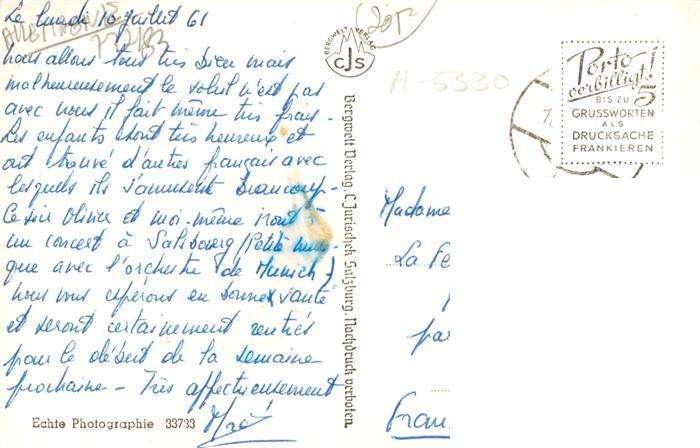 Le lundi 10 Juillet 61
nous allons tous très bien mais
malheureusement le soleil n'est pas
avec nous il fait même très frais.
Les enfants sont très heureux et
ont trouvé d'autres français avec
lesquels ils s'amusent beaucoup.
Ce soir Olivier et moi-même irons à
un concert à Salzbourg (Petite musi-
que avec l'orchestre de Munich)
nous vous espérons en bonne santé
et serons certainement rentrés
pour le début de la semaine
prochaine - Très affectueusement
Echte Photographie 33783
BERGWELT VERLAG
CJS
Bergwelt Verlag, C. Jurischek Salzburg. Nachdruck verboten.
A-5330
Porto
verbilligt!
BIS ZU 5
GRUSSWORTEN
ALS
DRUCKSACHE
FRANKIEREN
Madame
La Fe
par
Fran